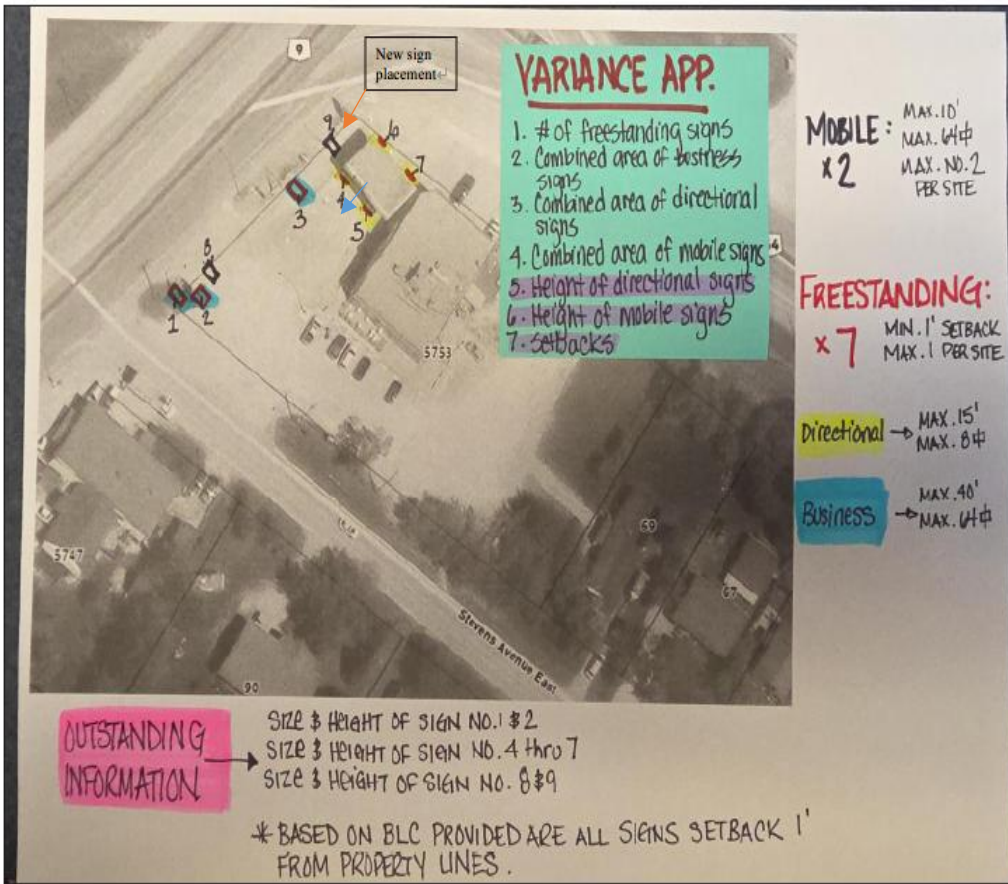 9
New sign
placement
VARIANCE APP.
1. # of freestanding signs
2. Combined area of business
signs
3. Combined area of directional
signs
4. Combined area of mobile signs
5. Height of directional signs
6. Height of mobile signs
7. Setbacks
MOBILE:
x2
MAX. 10'
MAX. 64⌷
MAX. NO. 2
PER SITE
FREESTANDING:
x7
MIN. 1' SETBACK
MAX. 1 PER SITE
Directional → MAX. 15'
MAX. 8⌷
Business → MAX. 40'
MAX. 64⌷
9
6
7
3
4
5
8
1
2
4
5753
5747
69
67
Stevens Avenue East
90
OUTSTANDING
INFORMATION
SIZE $ HEIGHT OF SIGN NO. 1 $ 2
SIZE $ HEIGHT OF SIGN NO. 4 thru 7
SIZE $ HEIGHT OF SIGN NO. 8 $ 9
* BASED ON BLC PROVIDED ARE ALL SIGNS SETBACK 1'
FROM PROPERTY LINES.